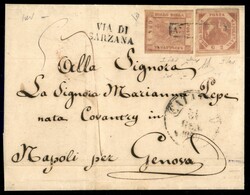 VIA DI
SARZANA
Alla Signora
La Signora Marianna Pepe
nata Coventry in
Napoli per Genova